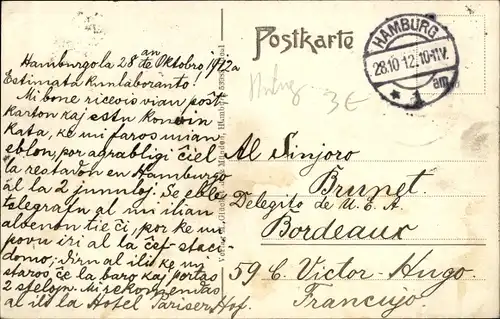 Hamburgo la 28an de Oktobro, 1912a
Estimata kunlaboranto!
Mi bone ricevis vian poŝt
karton kaj estu konvin
kata, ke mi faros mian
eblon, por agrabligi ĉiel
la restadon en Hamburgo
al la 2 junuloj. Se eble
telegrafu al mi ilian
alvenon tie ĉi, por ke mi
povu iri al la ĉef-staci-
domo; diru al ili ke mi
staros ĉe la baro kaj portas
2 stelojn. Mi rekomendas
al ili la Hotel Pariser Hof.
Postkarte
HAMBURG
28.10.12.10-11V.
* 1
3€
Al Sinjoro
Brunet
Delegito de U.E.A.
Bordeaux
59 C. Victor-Hugo.
Francujo.